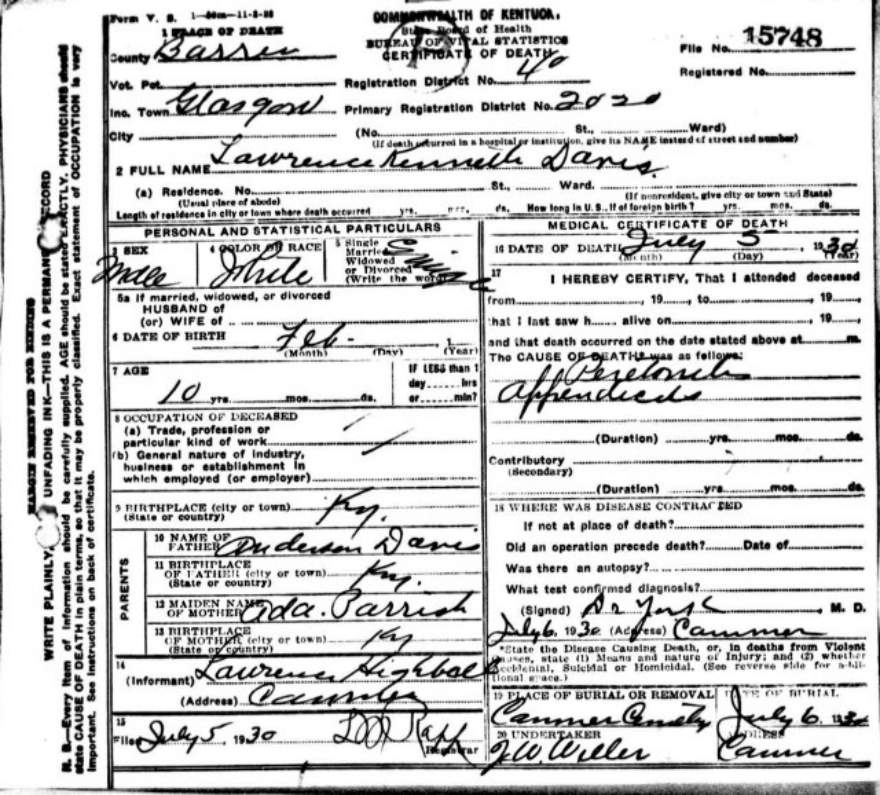 Form V. S. 1
COMMONWEALTH OF KENTUCKY
State Board of Health
BUREAU OF VITAL STATISTICS
CERTIFICATE OF DEATH
File No. 15748
Registered No.
1 PLACE OF DEATH
County Barren
Vot. Pct.
Registration District No. 40
Inc. Town Glasgow
Primary Registration District No. 2020
City (No. St., Ward)
(If death occurred in a hospital or institution, give its NAME instead of street and number)
2 FULL NAME Lawrence Kenneth Davis.
(a) Residence. No. St., Ward.
(Usual place of abode) (If nonresident, give city or town and State)
Length of residence in city or town where death occurred yrs. mos. ds. How long in U. S., if of foreign birth? yrs. mos. ds.
PERSONAL AND STATISTICAL PARTICULARS
3 SEX Male
4 COLOR OR RACE White
5 Single
Married
Widowed
or Divorced
(Write the word)
5a If married, widowed, or divorced
HUSBAND of
(or) WIFE of
6 DATE OF BIRTH Feb- 1
(Month) (Day) (Year)
7 AGE
10 yrs. mos. ds.
IF LESS than 1
day hrs
or min?
8 OCCUPATION OF DECEASED
(a) Trade, profession or
particular kind of work
(b) General nature of industry,
business or establishment in
which employed (or employer)
9 BIRTHPLACE (city or town)
(State or country) Ky.
PARENTS
10 NAME OF
FATHER Anderson Davis
11 BIRTHPLACE
OF FATHER (city or town)
(State or country) Ky.
12 MAIDEN NAME
OF MOTHER Ada. Parrish
13 BIRTHPLACE
OF MOTHER (city or town)
(State or country) Ky
14
(Informant) Lawrence
(Address) Canmer
15
Filed July 5, 1930
Registrar
MEDICAL CERTIFICATE OF DEATH
16 DATE OF DEATH July 5, 1930
(Month) (Day) (Year)
17
I HEREBY CERTIFY, That I attended deceased
from , 19 , to , 19
that I last saw h alive on , 19 ,
and that death occurred on the date stated above at m.
The CAUSE OF DEATH* was as follows:
Peretonites
Appendicits
(Duration) yrs. mos. ds.
Contributory
(Secondary)
(Duration) yrs. mos. ds.
18 WHERE WAS DISEASE CONTRACTED
If not at place of death?
Did an operation precede death? Date of
Was there an autopsy?
What test confirmed diagnosis?
(Signed) Dr York, M. D.
July 6, 1930 (Address) Canmer
*State the Disease Causing Death, or, in deaths from Violent
Causes, state (1) Means and nature of Injury; and (2) whether
Accidental, Suicidal or Homicidal. (See reverse side for additional space.)
19 PLACE OF BURIAL OR REMOVAL
Canmer
DATE OF BURIAL
July 6, 1930
20 UNDERTAKER
J. W. Willer
ADDRESS
Canmer
MARGIN RESERVED FOR BINDING
WRITE PLAINLY, UNFADING INK—THIS IS A PERMANENT RECORD
N. B.—Every item of information should be carefully supplied. AGE should be stated EXACTLY. PHYSICIANS should
state CAUSE OF DEATH in plain terms, so that it may be properly classified. Exact statement of OCCUPATION is very
important. See instructions on back of certificate.